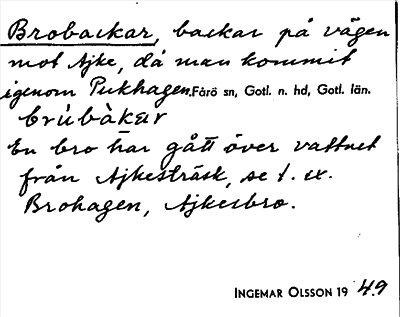 Brobackar, backar på vägen
mot Ajke, då man kommit
igenom Pukhagen, Fårö sn, Gotl. n. hd, Gotl. län.
brúbàkar
En bro har gått över vattnet
från Ajkesträsk, se t. ex.
Brohagen, Ajkesbro.
INGEMAR OLSSON 19 49